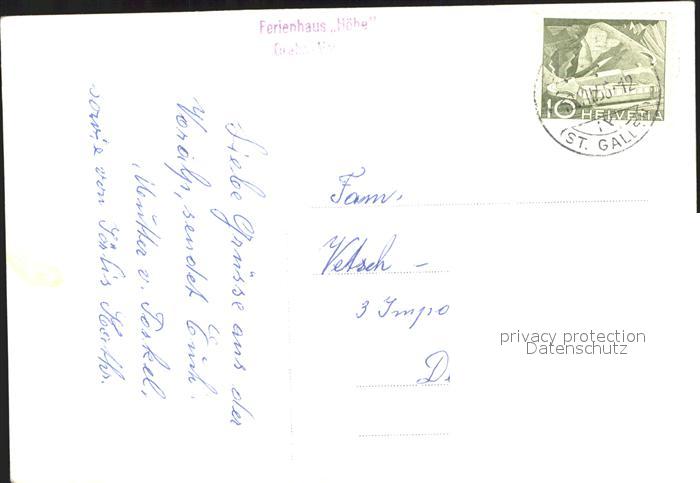 Ferienhaus „Höhe"
10 HELVETIA
(ST. GALL
Liebe Grüsse aus der
Voralp, sendet Euch
Mutter v. Torkel,
sowie von
Fam.
Vetsch -
3 Impo
D
privacy protection
Datenschutz